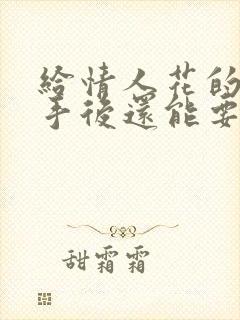 給情人花的
手後還能要
甜霜霜